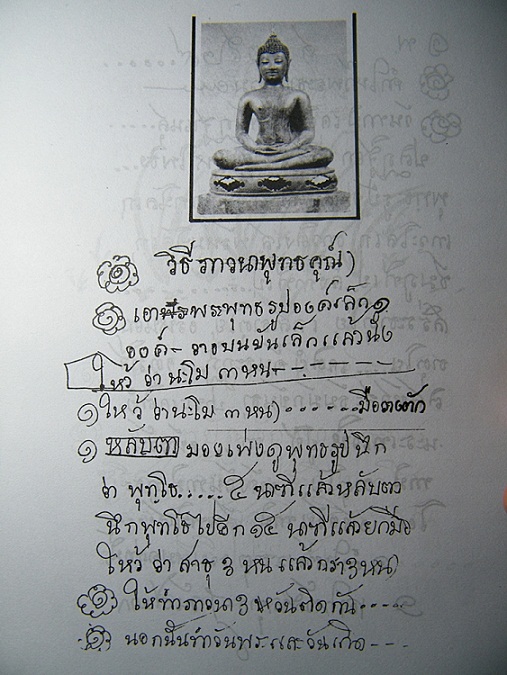 วิธีภาวนาพุทธคุณ)
เอาพระพุทธรูปองค์เล็ก ๑
องค์ - วางบนขันเล็กแล้วนั่ง
ไหว้ ว่า นะโม ๓ หน - - - - - -
๑ ไหว้ ว่านะโม ๓ หน) - - - - - - มือตัก
๑ หลับตา มองเพ่งดูพุทธรูป นึก
ว่า พุทโธ..... ๕ นาที แล้วหลับตา
นึกพุทโธไปอีก ๑๕ นาที แล้วยกมือ
ไหว้ ว่า สาธุ ๓ หน แล้วกราบ ๓ หน
ให้ทำภาวนา ๓ วันติดกัน - - - -
นอกนั้นทำวันพระและวันเกิด - - -